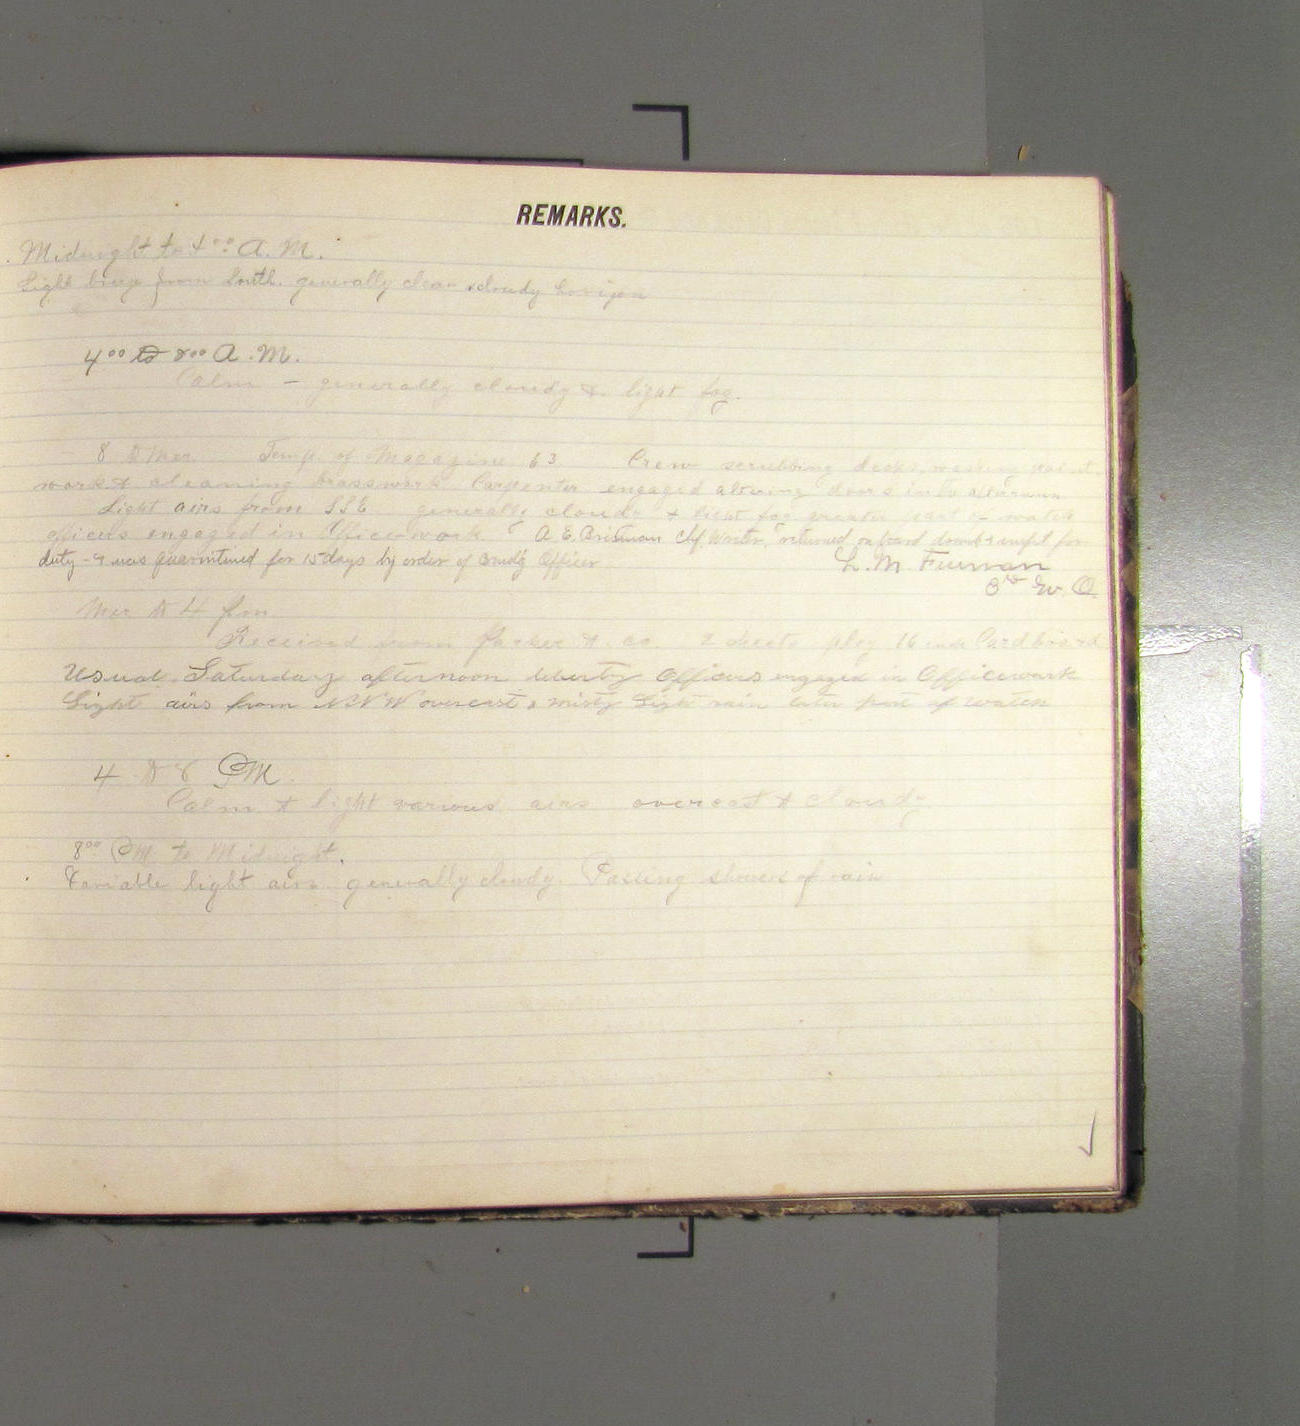 REMARKS.
Midnight to 4⁰⁰ A.M.
Light breeze from South. generally clear & cloudy horizon
4⁰⁰ to 8⁰⁰ A.M.
Calm - generally cloudy & light fog.
8 to Mer. Temp. of Magazine 63 Crew scrubbing decks, washing paint
work & cleaning brasswork Carpenter engaged altering doors in
Light airs from SSE generally cloudy & light fog greater part of watch
officers engaged in Officework. A. E. Chf. Writer, returned on board drunk & unfit for
duty - & was quarantined for 15 days by order of Comd'g Officer
L. M. Furman
W. O.
Mer to 4 pm
Received from & co. 2 sheets ply 16 inch Cardboard
Usual Saturday afternoon liberty Officers engaged in Officework
Light airs from NNW overcast & misty Light rain later part of watch
4 to 8 PM
Calm & light various airs overcast & cloudy
8⁰⁰ PM to Midnight.
Variable light airs generally cloudy. Passing showers of rain